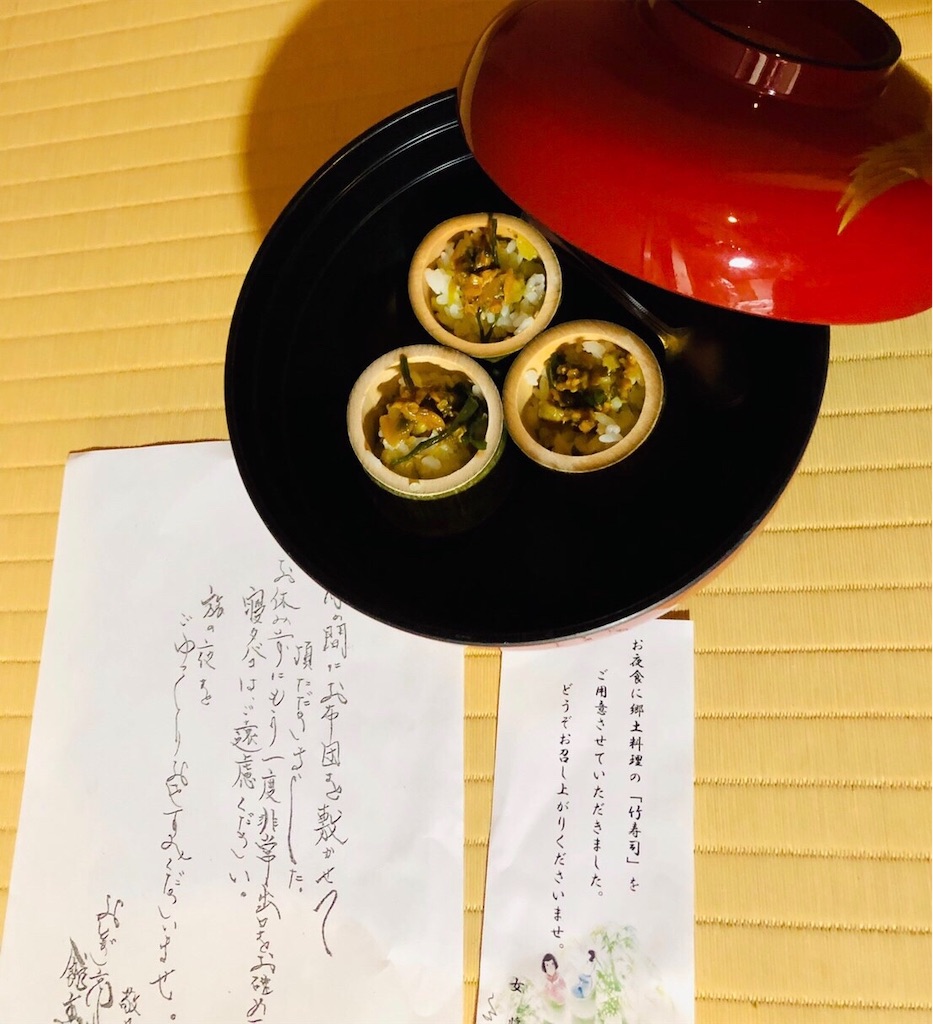 の間にお布団を敷かせて
頂だきました。
お休み前にもう一度非常出口をお確め
寝タバコはご遠慮ください。
旅の夜を
ごゆっくりお過ごしくださいませ。
敬
お夜食に郷土料理の「竹寿司」を
ご用意させていただきました。
どうぞお召し上がりくださいませ。
女将